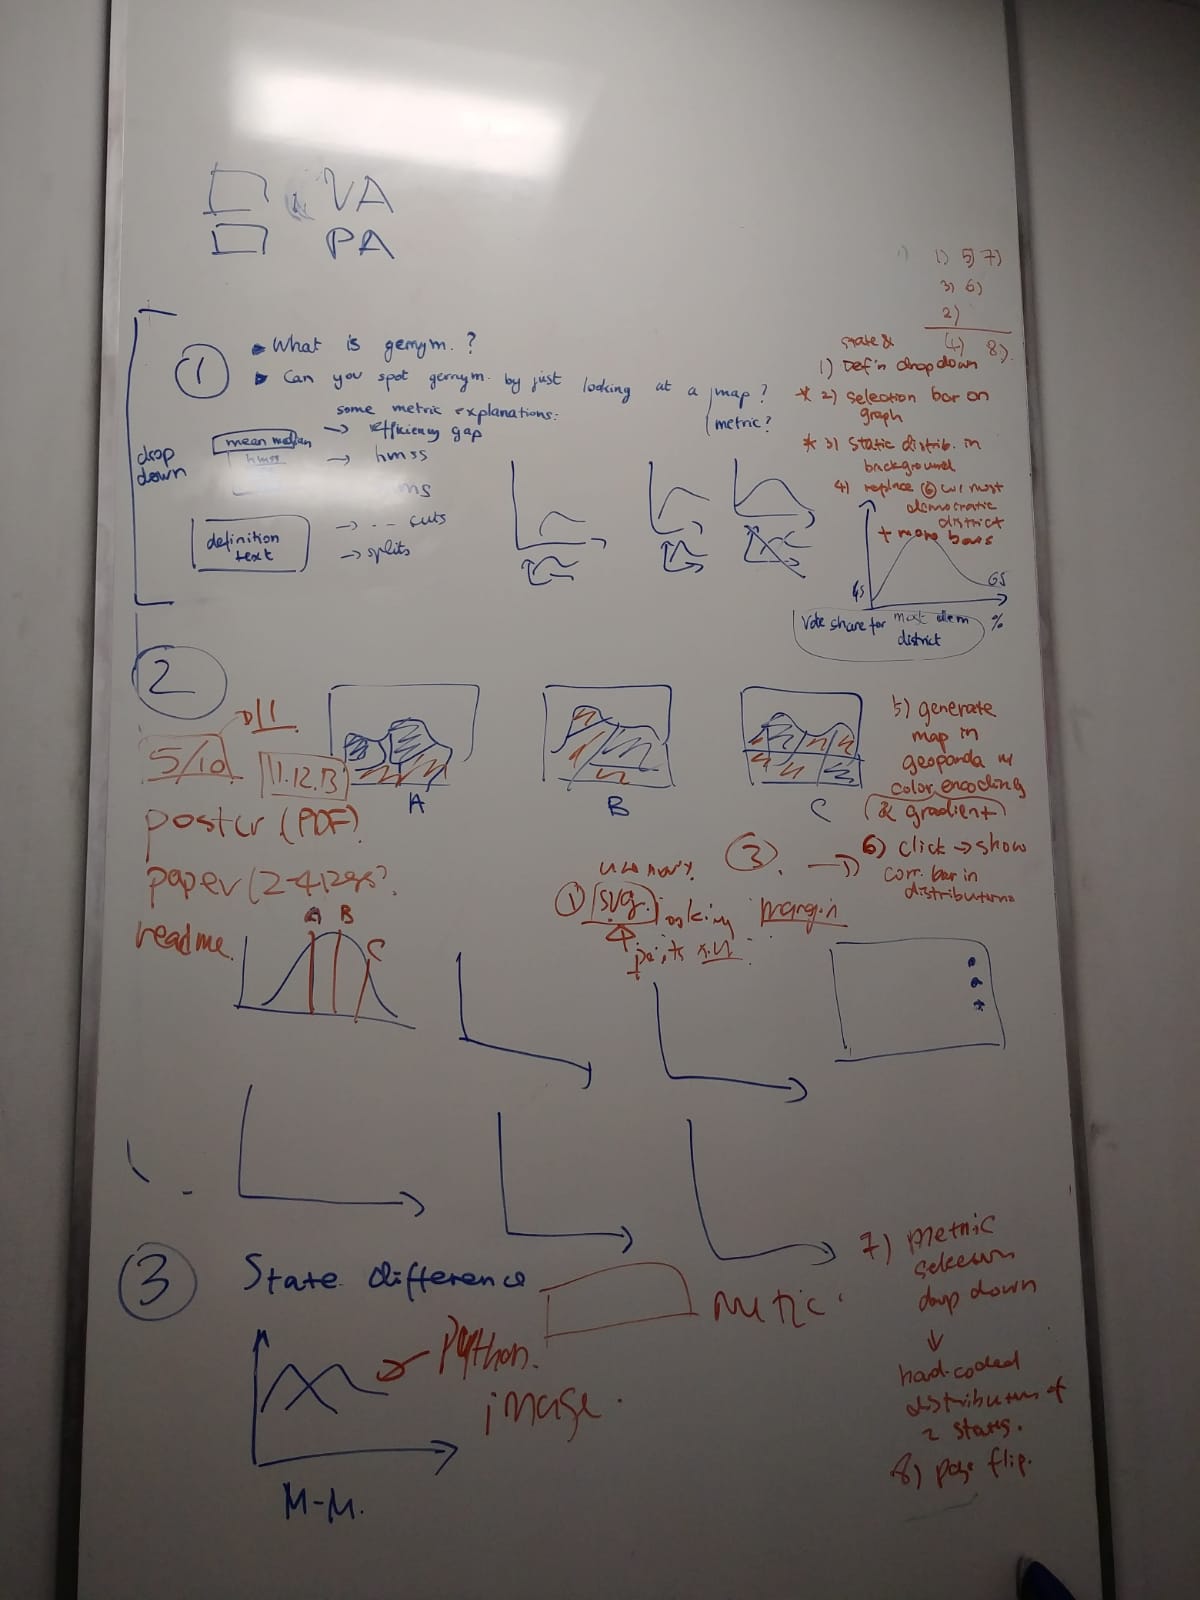 VA
PA
1) 5) 7)
3) 6)
2)
(4) 8)
1
• What is gerrym. ?
• Can you spot gerrym. by just looking at a map?
metric?
some metric explanations:
mean median → efficiency gap
hmss → hmss
drop
down
definition
text
→ -- cuts
→ splits
state &
1) Def'n drop down
* 2) selection bar on
graph
* 3) static distrib. in
background
4) replace 6 w/ most
democratic
district
+ more bars
Vote share for most dem
district
%
2
D11
5/10
11.12.13
poster (PDF)
paper
readme
A
B
C
5) generate
map in
geopanda w
color encoding
& gradient
3
6) click → show
corr. bar in
distributions
1 svg
margin
A B C
3
State difference
Python
image
metric
M-M.
7) Metric
selection
drop down
↓
hard-coded
distributions of
2 states.
8) page flip.